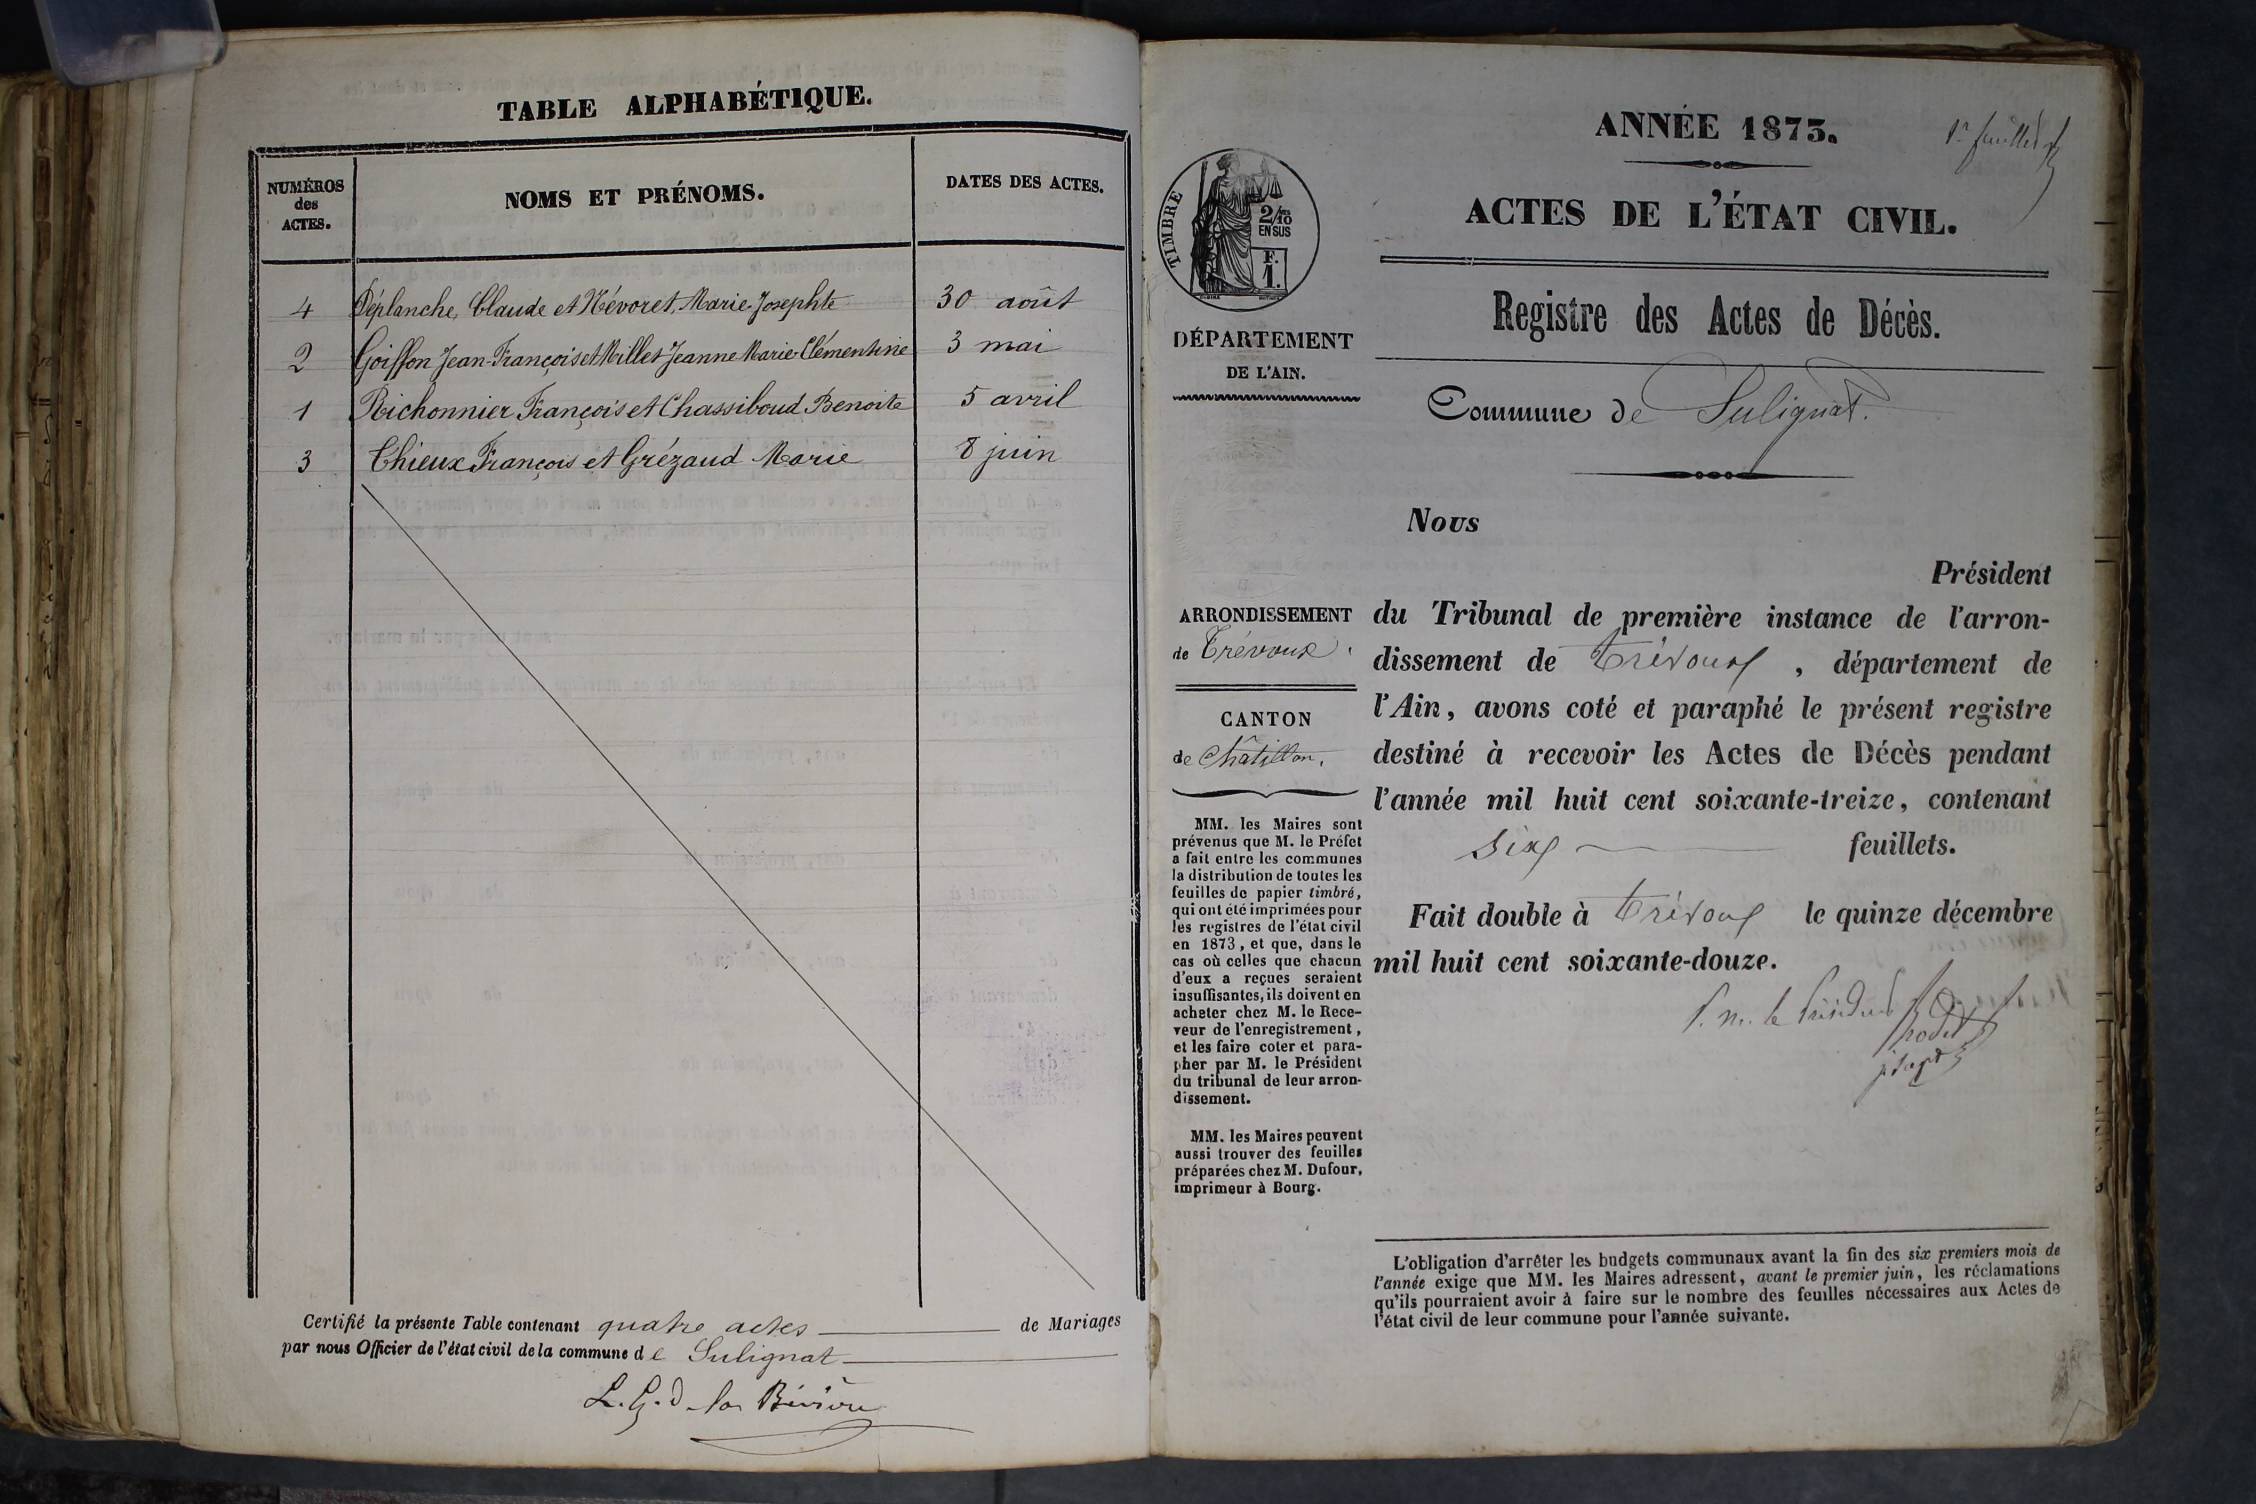 TABLE ALPHABÉTIQUE.
NUMÉROS
des
ACTES.
NOMS ET PRÉNOMS.
DATES DES ACTES.
4 Déplanche, Claude et Névoret, Marie-Josephte 30 août
2 Goiffon Jean-François et Millet Jeanne Marie-Clémentine 3 mai
1 Richonnier François et Chassiboud Benoite 5 avril
3 Chieux François et Grézaud Marie 8 juin
Certifié la présente Table contenant quatre actes de Mariages
par nous Officier de l'état civil de la commune de Sulignat
L. G. d. la Bévière
ANNÉE 1873.
1er feuillet
ACTES DE L'ÉTAT CIVIL.
Registre des Actes de Décès.
Commune de Sulignat.
TIMBRE
2/10
EN SUS
F.
1.
DÉPARTEMENT
DE L'AIN.
ARRONDISSEMENT
de Trévoux.
CANTON
de Châtillon.
MM. les Maires sont
prévenus que M. le Préfet
a fait entre les communes
la distribution de toutes les
feuilles de papier timbré,
qui ont été imprimées pour
les registres de l'état civil
en 1873, et que, dans le
cas où celles que chacun
d'eux a reçues seraient
insuffisantes, ils doivent en
acheter chez M. le Rece-
veur de l'enregistrement,
et les faire coter et para-
pher par M. le Président
du tribunal de leur arron-
dissement.
MM. les Maires peuvent
aussi trouver des feuilles
préparées chez M. Dufour,
imprimeur à Bourg.
Nous
Président
du Tribunal de première instance de l'arron-
dissement de Trévoux, département de
l'Ain, avons coté et paraphé le présent registre
destiné à recevoir les Actes de Décès pendant
l'année mil huit cent soixante-treize, contenant
six feuillets.
Fait double à Trévoux le quinze décembre
mil huit cent soixante-douze.
P. M. le Président
L'obligation d'arrêter les budgets communaux avant la fin des six premiers mois de
l'année exige que MM. les Maires adressent, avant le premier juin, les réclamations
qu'ils pourraient avoir à faire sur le nombre des feuilles nécessaires aux Actes de
l'état civil de leur commune pour l'année suivante.